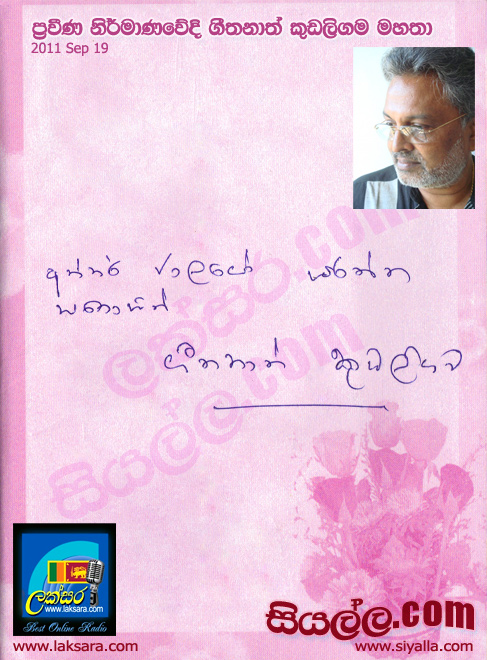 ප්‍රවීණ නිර්මාණවේදී ගීතනාත් කුඩලිගම මහතා
2011 Sep 19
ලක්සර.com
සියල්ල.com
අන්තර්
සතොසින්
ගීතනාත් කුඩලිගම
ලක්සර
www.laksara.com
Best Online Radio
සියල්ල.com
www.laksara.com
www.siyalla.com